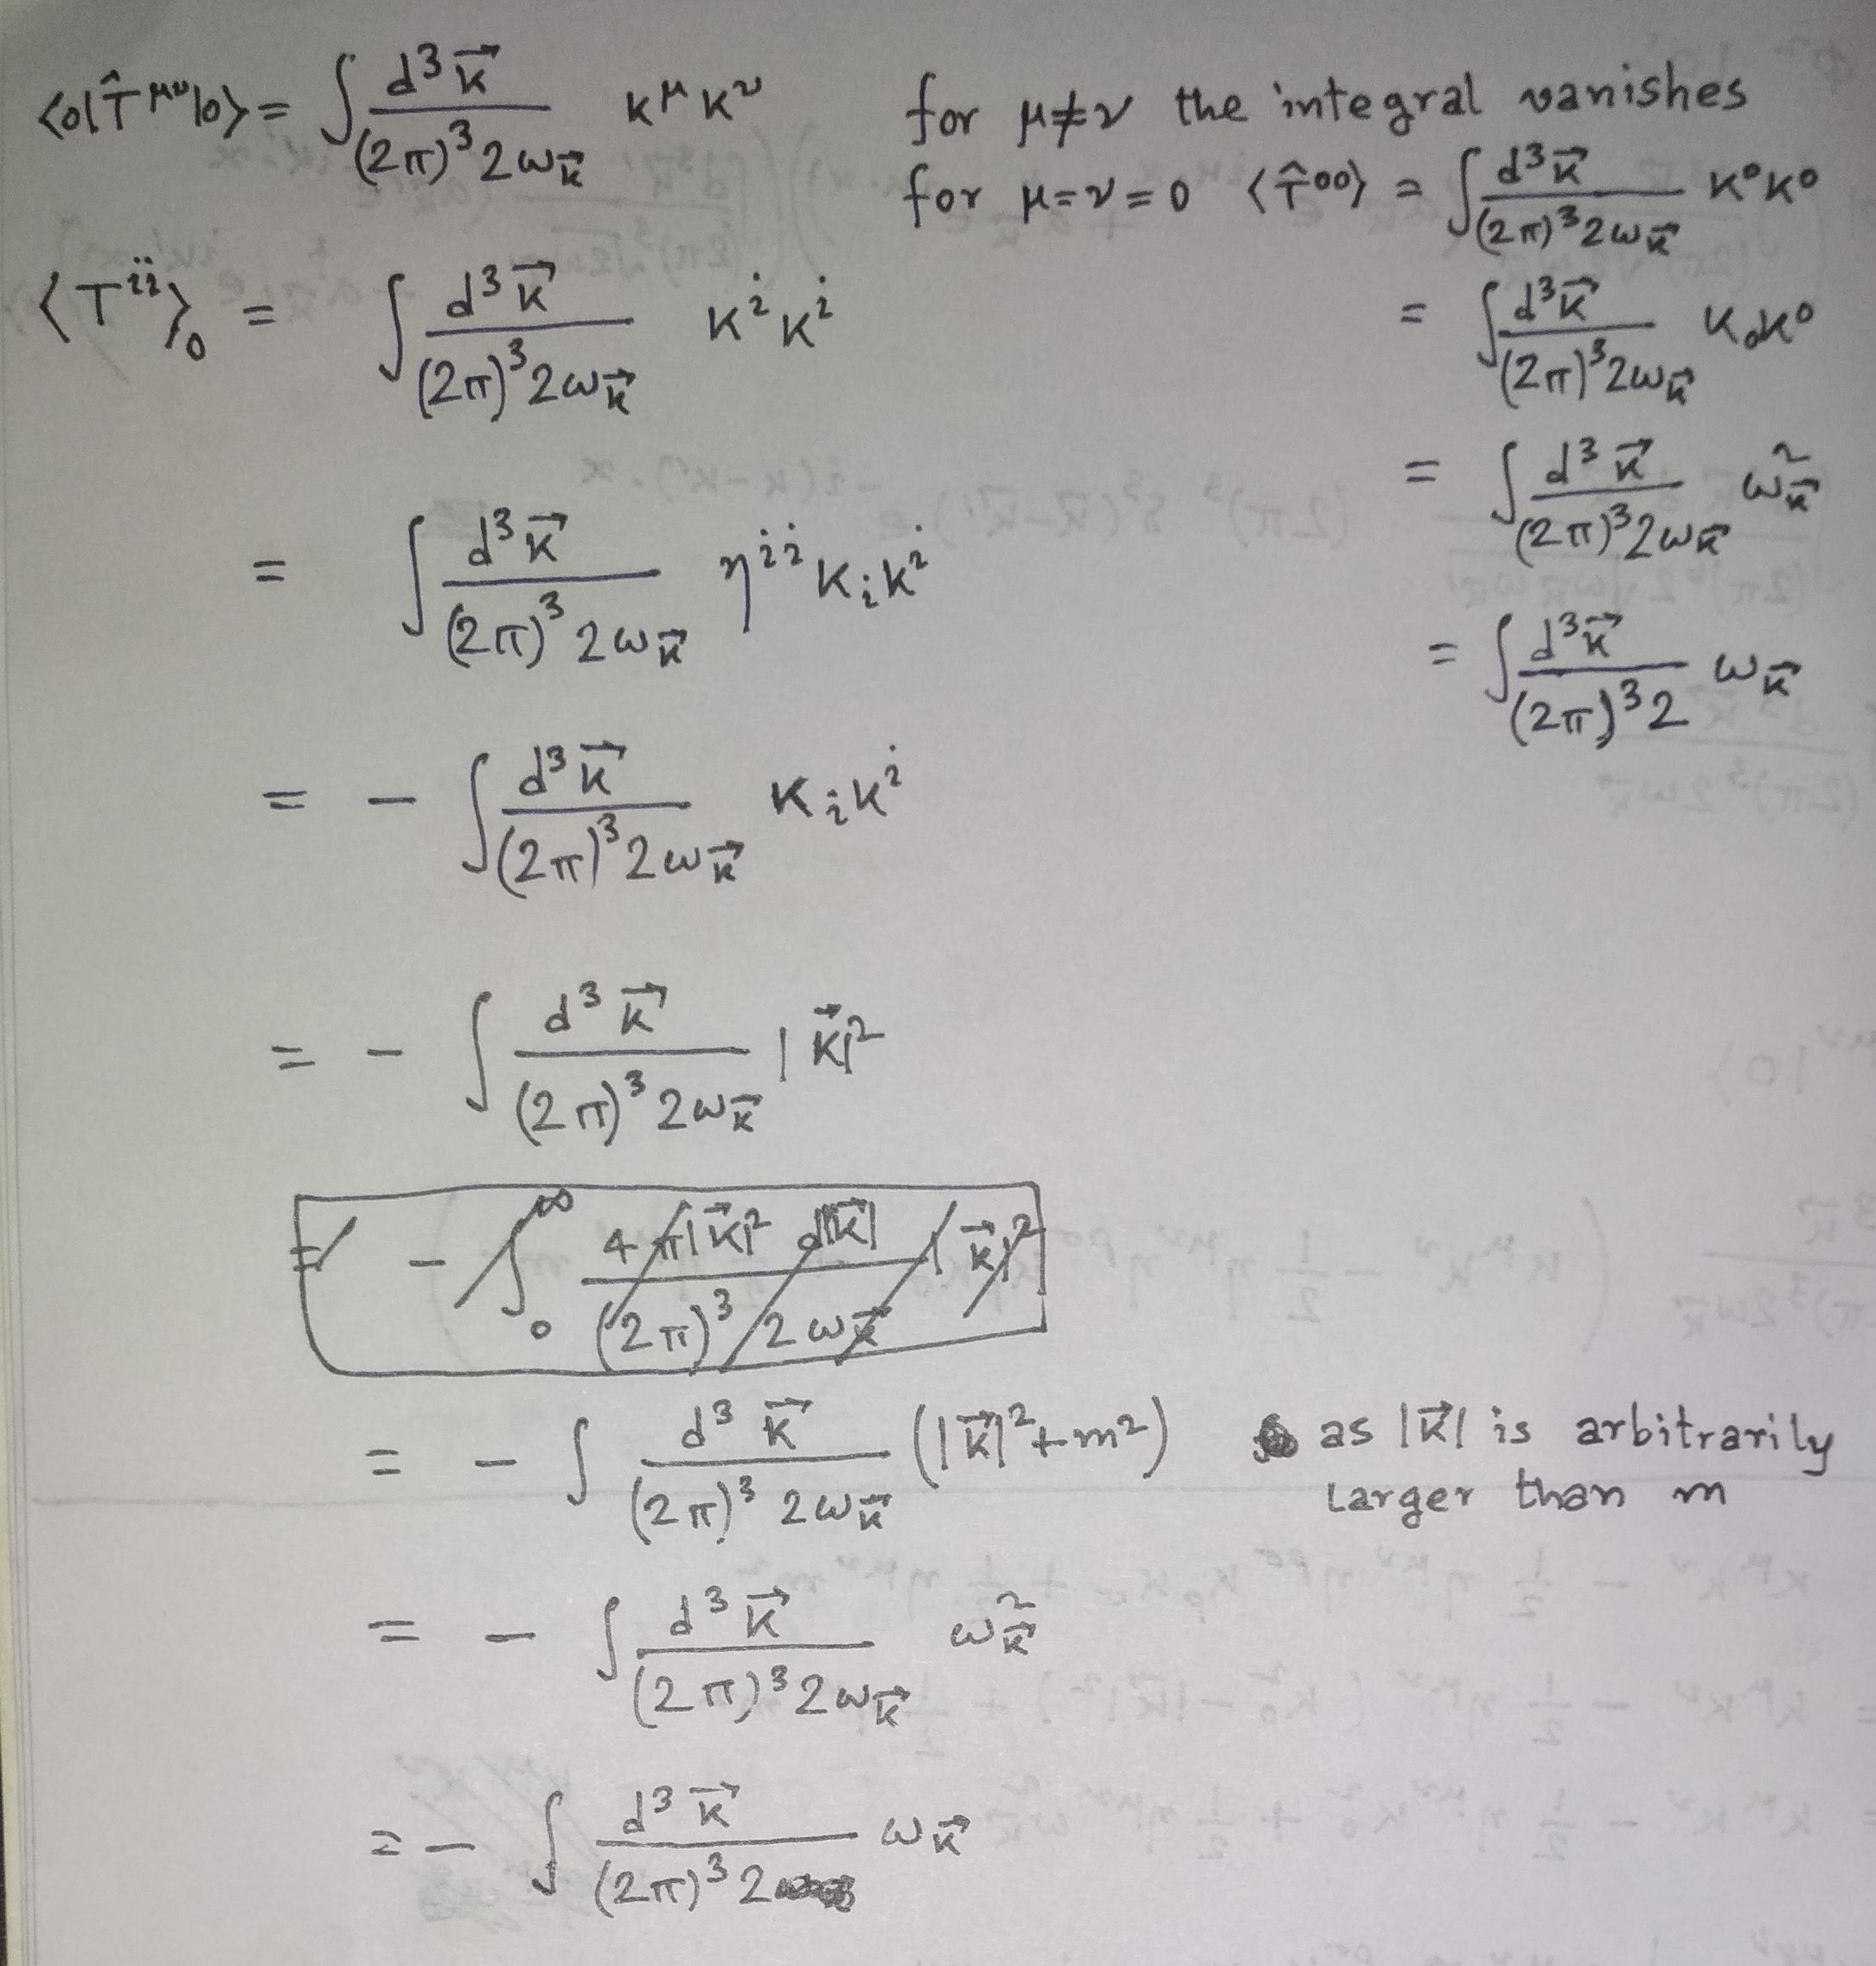 <0|T̂^μν|0> = ∫ d³k⃗ / (2π)³ 2ω_k⃗ k^μ k^ν for μ≠ν the integral vanishes
for μ=ν=0 ⟨T̂⁰⁰⟩ = ∫ d³k⃗ / (2π)³ 2ω_k⃗ k⁰k⁰
⟨T^ii⟩₀ = ∫ d³k⃗ / (2π)³ 2ω_k⃗ k^i k^i
= ∫ d³k⃗ / (2π)³ 2ω_k⃗ k₀k⁰
= ∫ d³k⃗ / (2π)³ 2ω_k⃗ ω²_k⃗
= ∫ d³k⃗ / (2π)³ 2ω_k⃗ η^ii k_i k^i
= ∫ d³k⃗ / (2π)³ 2 ω_k⃗
= - ∫ d³k⃗ / (2π)³ 2ω_k⃗ k_i k^i
= - ∫ d³k⃗ / (2π)³ 2ω_k⃗ |k⃗|²
= - ∫₀^∞ 4π|k⃗|² d|k⃗| / (2π)³ 2ω_k⃗ |k⃗|²
= - ∫ d³k⃗ / (2π)³ 2ω_k⃗ (|k⃗|²+m²) as |k⃗| is arbitrarily
larger than m
= - ∫ d³k⃗ / (2π)³ 2ω_k⃗ ω²_k⃗
= - ∫ d³k⃗ / (2π)³ 2 ω_k⃗